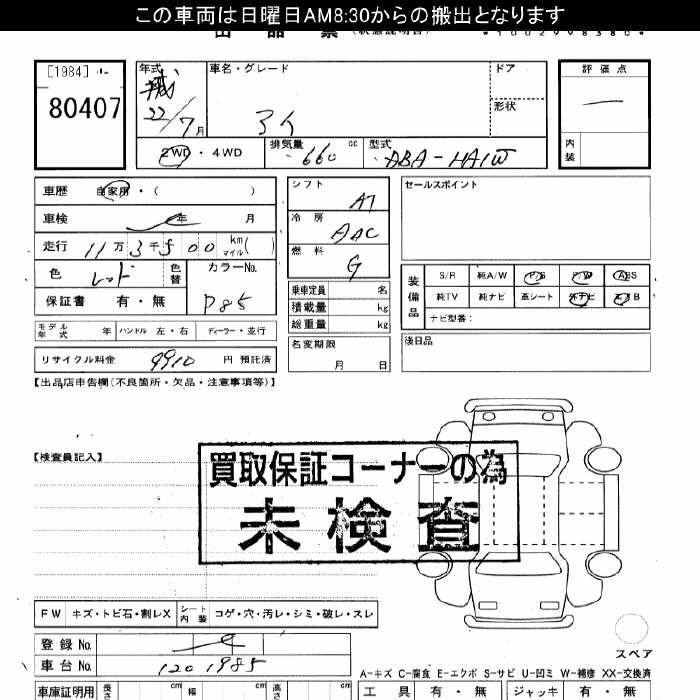 この車両は日曜日AM8:30からの搬出となります
出品票(状態説明書) *1002998380*
[1984]
80407
年式
平成22/7月
車名・グレード
アイ
ドア
形状
評価点
内装
2WD・4WD
排気量 660cc
型式 ABA-HA1W
車歴 自家用・( )
車検 年 月
走行 11万3千500km マイル( )
色 レッド 色替
カラーNo. P85
保証書 有・無
シフト AT
冷房 AAC
燃料 G
乗車定員 名
積載量 kg
総重量 kg
名変期限 月 日
セールスポイント
装備品
S/R 純A/W P/S P/W ABS
純TV 純ナビ 革シート 外ナビ エアB
ナビ型番:
後日品
モデル年式 年 ハンドル 左・右 ディーラー・並行
リサイクル料金 9910 円 預託済
【出品店申告欄(不良箇所・欠品・注意事項等)】
【検査員記入】
買取保証コーナーの為
未検査
FW キズ・トビ石・割レX シート内装 コゲ・穴・汚レ・シミ・破レ・スレ
登録No.
車台No. 1201985
スペア
A-キズ C-腐食 E-エクボ S-サビ U-凹ミ W-補修 XX-交換済
車庫証明用 長さ cm 幅 cm 高さ cm
工具 有・無 ジャッキ 有・無